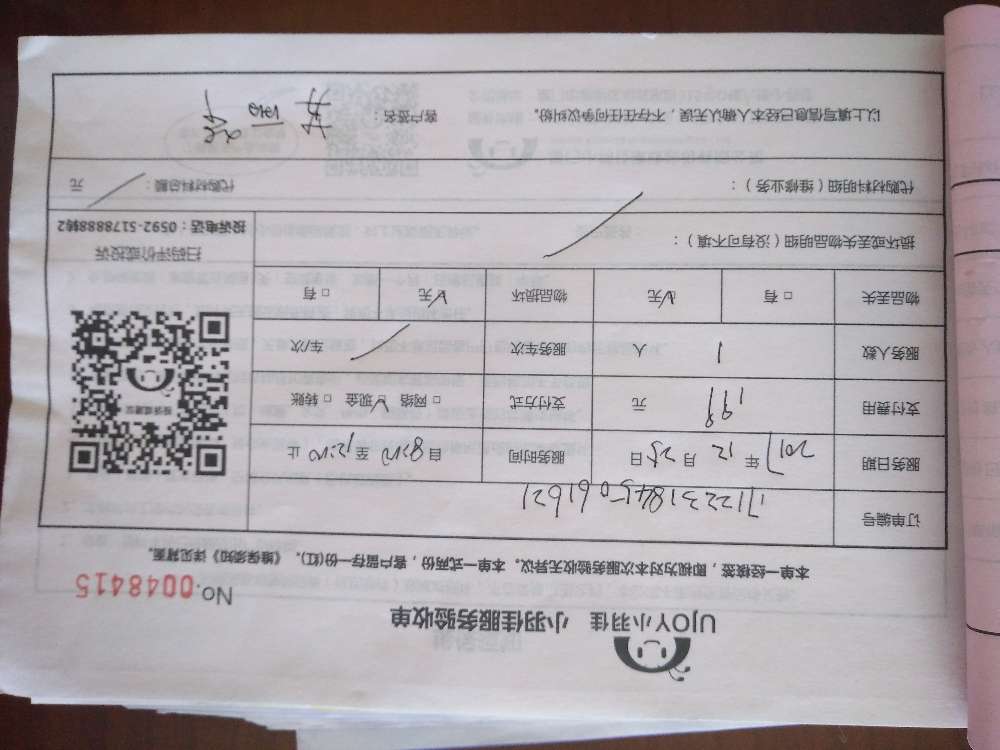 UJOY小羽佳 小羽佳服务验收单
No.0048415
本单一经核签，即视为对本次服务验收无异议。本单一式两份，客户留存一份(红)。《维保须知》详见背面。
订单编号 171223184506 1621
服务日期 2017年12月25日 服务时间 自8:10至12:10止
支付费用 199元 支付方式 □网络 ☑现金 □转账
服务人数 1人 服务车次 车/次
物品丢失 □有 ☑无 物品损坏 ☑无 □有
扫码评价或投诉
投诉电话：0592-5178888转2
损坏或丢失物品明细（没有可不填）：
代购材料明细（维修业务）：
代购材料总额： 元
以上填写信息已经本人确认无误，不存在任何争议纠纷。 客户签名：